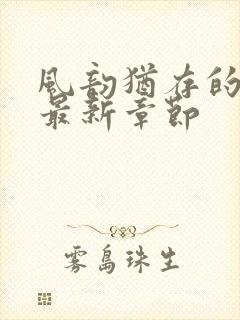 風韵犹存的
最新章節
雾島珠生